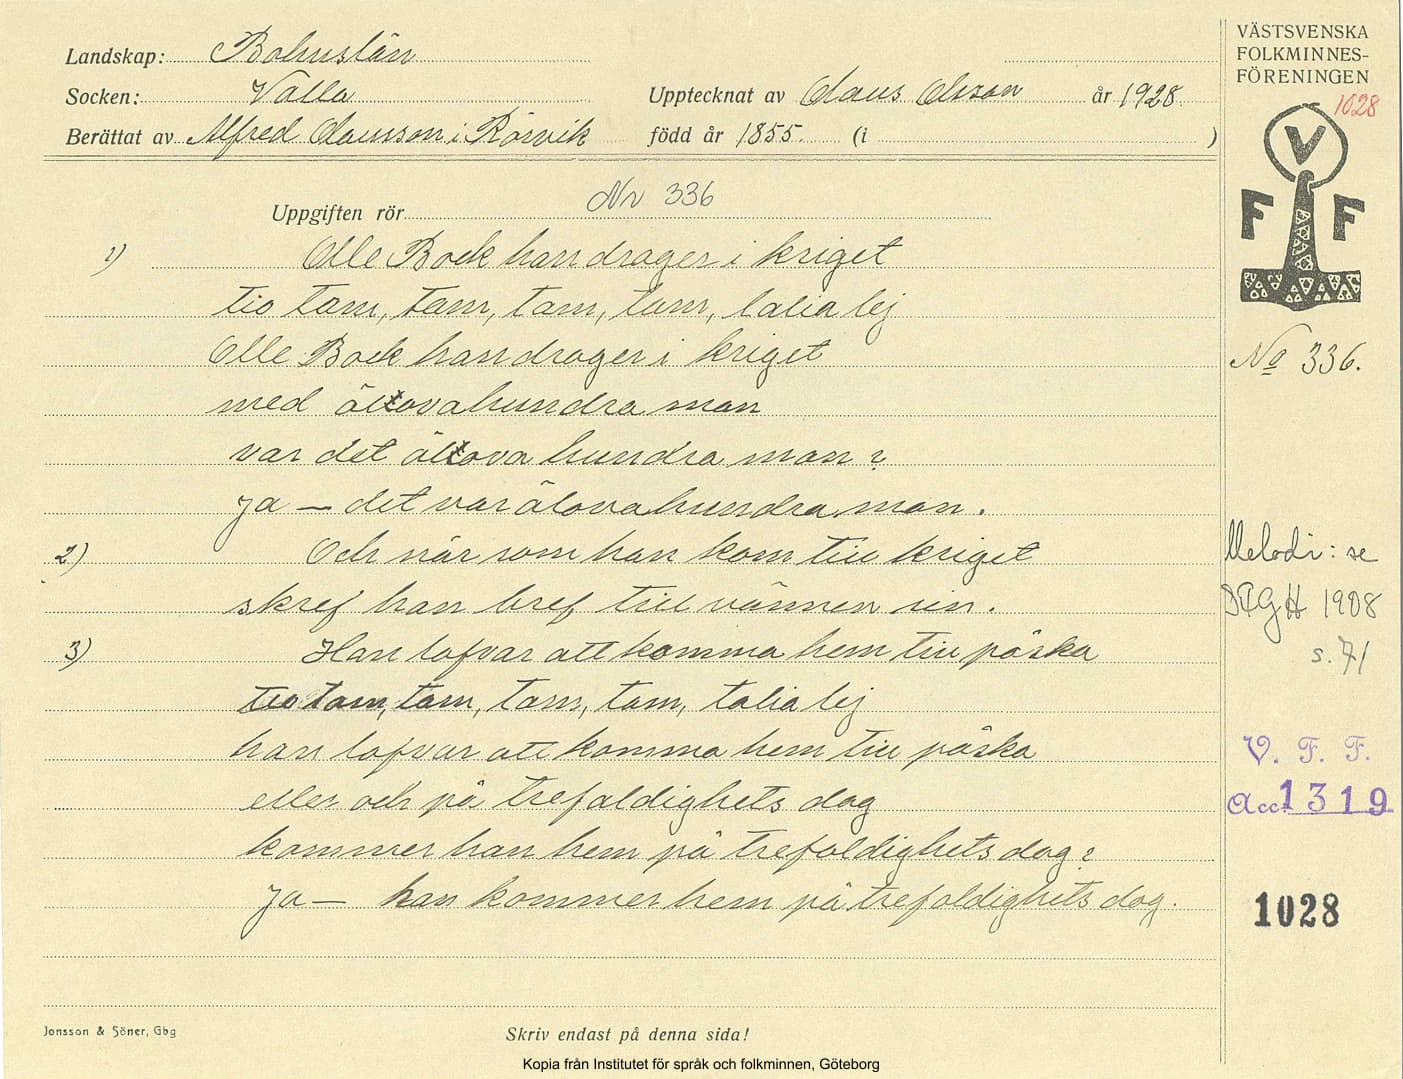 Landskap: Bohuslän
Socken: Valla
Upptecknat av Claus Olsson år 1928
Berättat av Alfred Clausson i Rörvik född år 1855. (i )
Uppgiften rör Nr 336
1) Olle Bock han drager i kriget
tio tam, tam, tam, tam, talia lej
Olle Bock han drager i kriget
med älovahundra man
var det älova hundra man?
Ja – det var älovahundra man.
2) Och när som han kom till kriget
skref han bref till vännen sin.
3) Han lofvar att komma hem till påska
tio tam, tam, tam, tam, talia lej
han lofvar att komma hem till påska
eller och på trefaldighets dag
kommer han hem på trefaldighets dag?
Ja – han kommer hem på trefaldighets dag.
Jonsson & Söner, Gbg
Skriv endast på denna sida!
Kopia från Institutet för språk och folkminnen, Göteborg
VÄSTSVENSKA
FOLKMINNES-
FÖRENINGEN
1028
V
F F
No 336.
Melodi: se
1908
s. 71
V. F. F.
Acc. 1319
1028